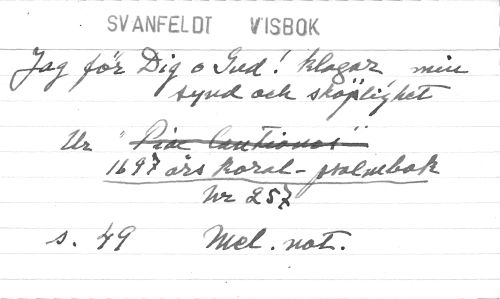 SVANFELDT VISBOK
Jag för Dig o Gud! klagar min
synd och sköplighet
Ur "Piae Cantiones"
1697 års koral-psalmbok
Nr 257
s. 49 Mel. not.